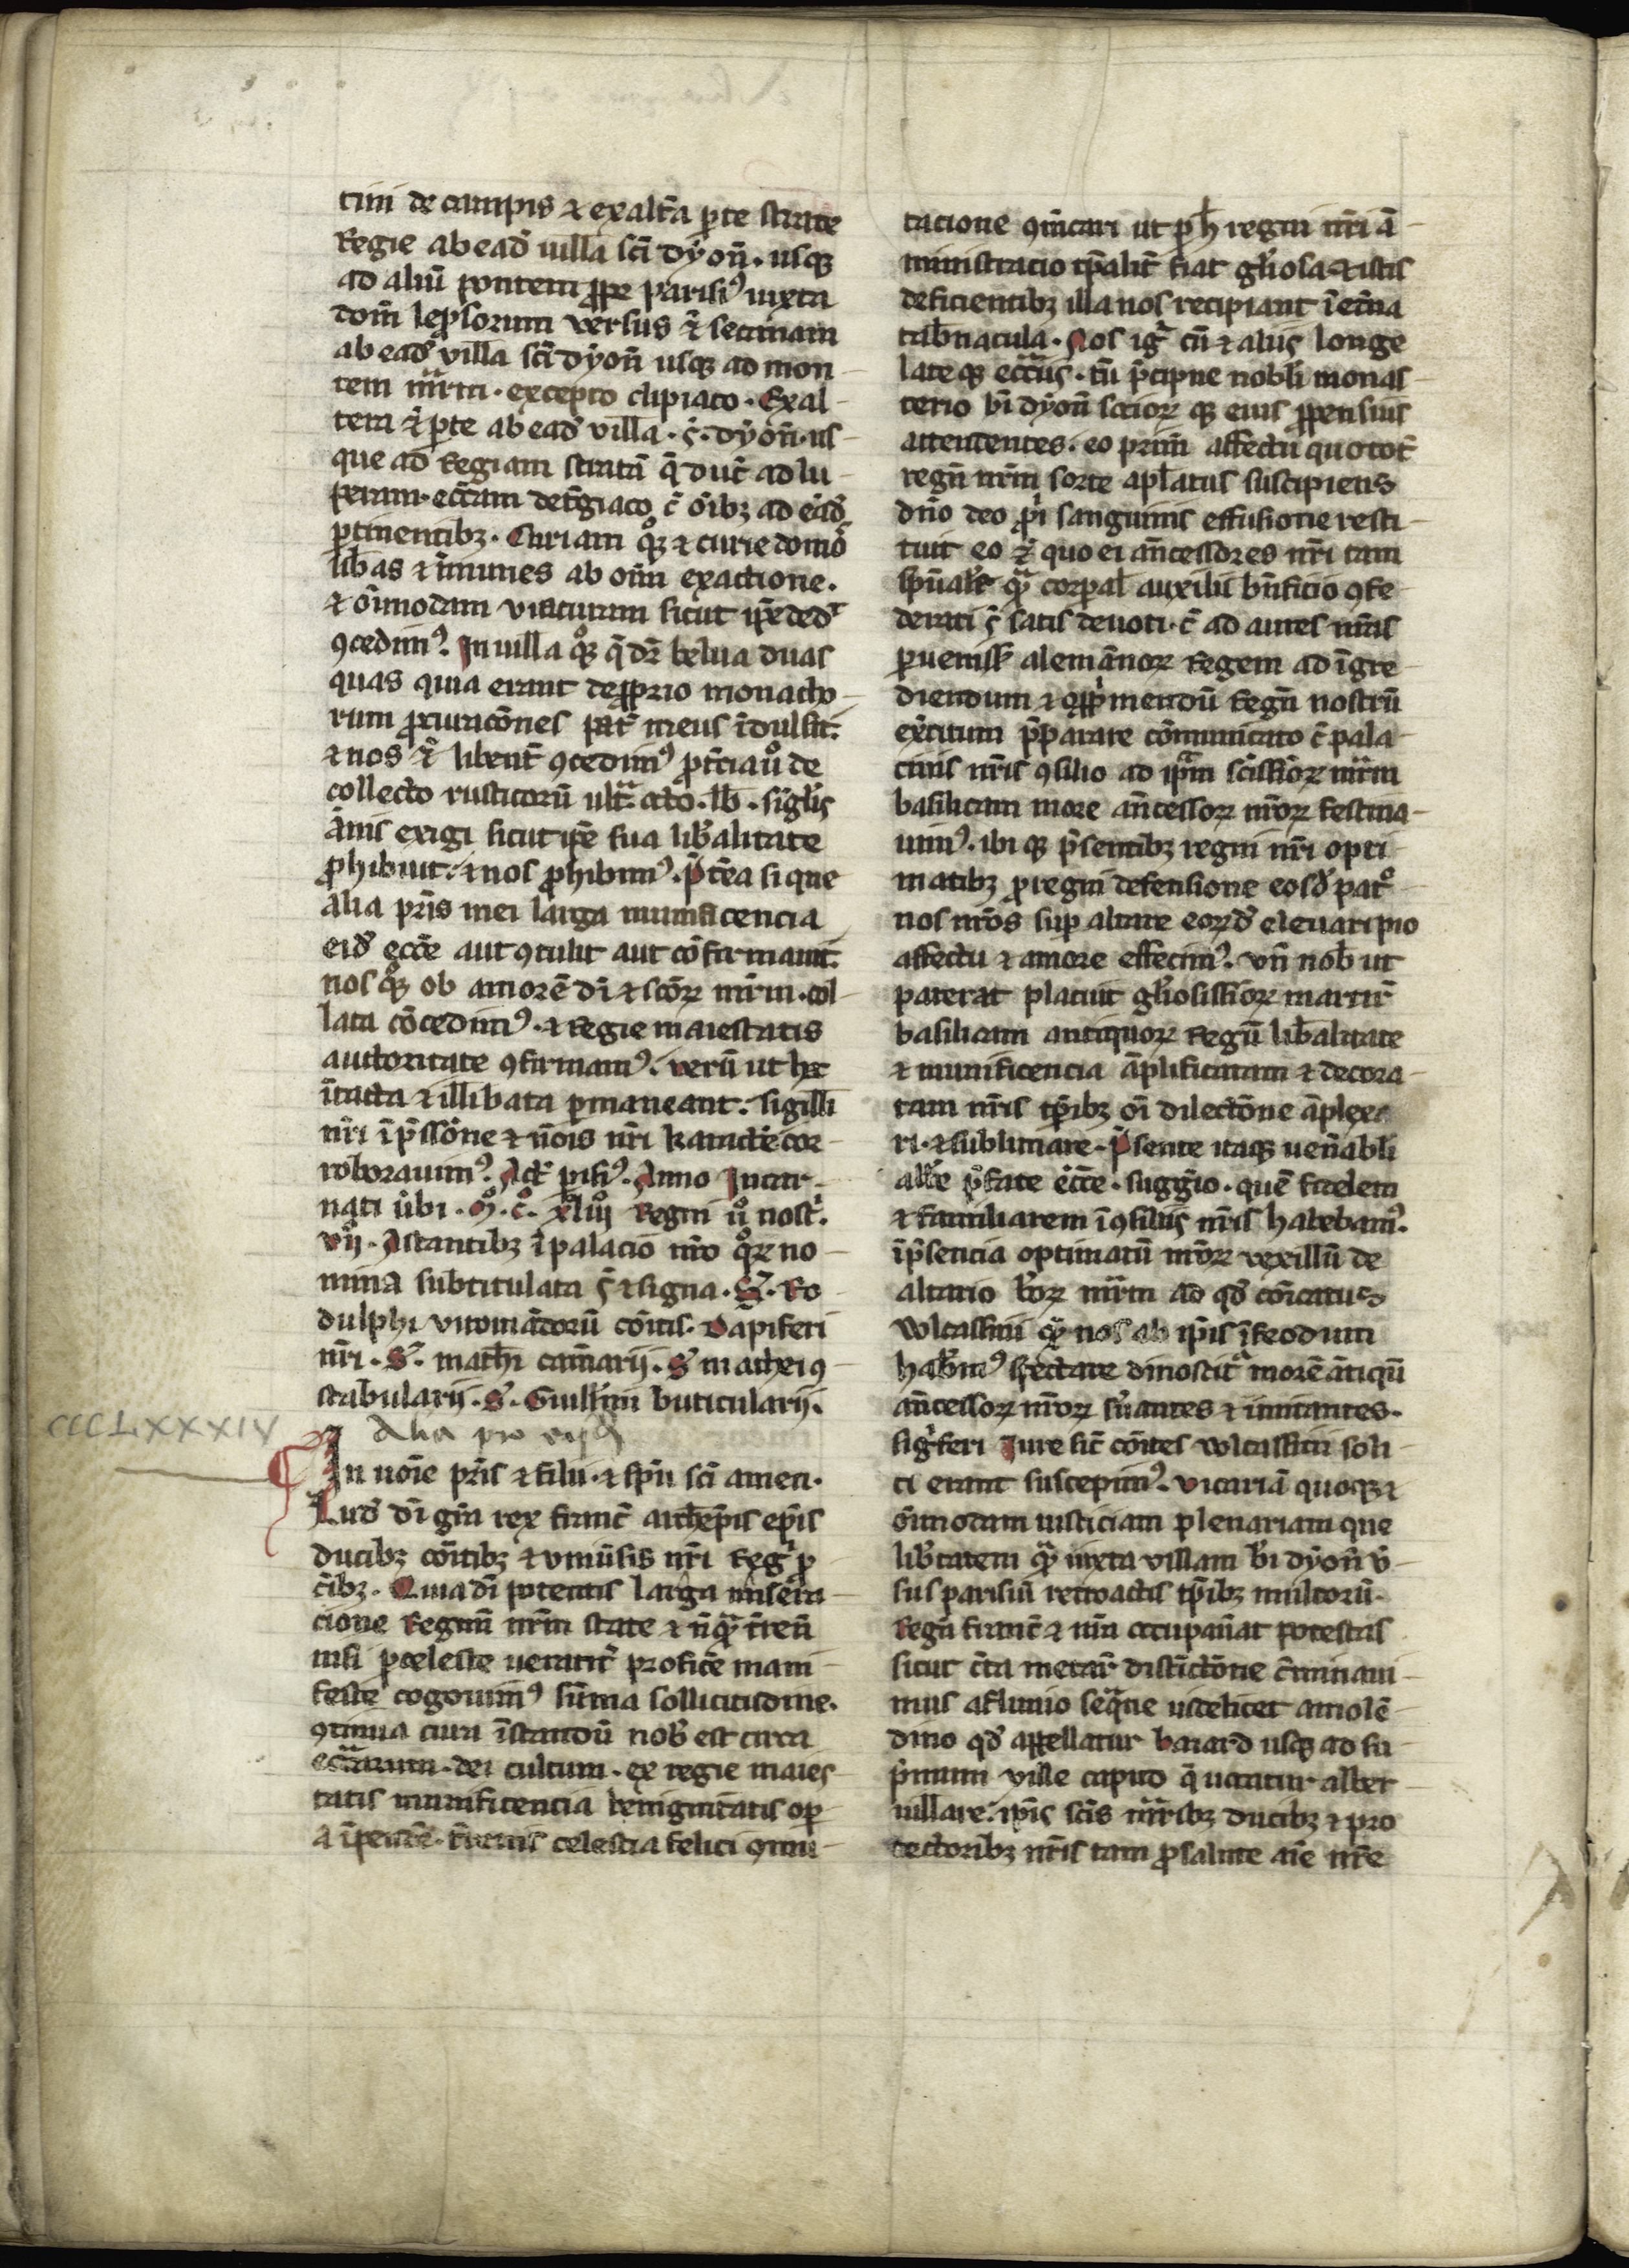 tini de campis ⁊ ex alt̃a ꝑte strate
Regie ab ead̃ uilla sc̃i dyoñ. usq
ad aliũ pontem ꝓpe parisiꝰ iuxta
dom̃ lep̃sorum versus ⁊ secanam
ab ead̃ villa sc̃i dyoñ usq ad mon-
tem mr̃m. excepto clipiaco. Ex al-
tera ꝑte ab ead̃ villa. s̃. dyoñ. us-
que ad Regiam stratã q̃ duc̃t ad lu-
peram. ecc̃am de c̃giaco c̃ õibꝫ ad eãd̃
ꝑtinentibꝫ. Curiam qͦꝫ ⁊ curie domõ
lib̃as ⁊ ĩmunes ab oĩm exactione.
⁊ õimodam viaturam sicut ip̃e dedͭ
ꝯcedimꝰ. In uilla qͦꝫ q̃ dr̃ belua duas
quas quia erant de ꝓprio monacho-
rum ꝓcuracõnes pat̃ meus ĩdulsit.
⁊ nos ⁊ libent̃ ꝯcedimꝰ
collecto rusticorũ ultͣ octo. lb̃. sigl̃is
ãnis exigi sicut ip̃e sua lib̃alitate
ꝓhibuit. ⁊ nos ꝓhibimꝰ. P̃tea si que
alia pr̃is mei larga munificencia
eid̃ ecc̃e aut ꝯtulit aut cõfirmauit.
nos qͦꝫ ob amorẽ dĩ ⁊ sc̃oꝝ mr̃m. col-
lata cõcedimꝰ. ⁊ Regie maiestatis
auctoritate ꝯfirmamꝰ. verũ ut hec
ĩtacta ⁊ illibata ꝑmaneant. sigilli
nr̃i ĩp̃ssõne ⁊ nõis nr̃i karactẽ cor-
roborauimꝰ. Act̃ ꝑisiꝰ. Anno Incar-
nati ũbi. Mͦ. Cͦ. xliiij Regni ũͦ nost̃.
vij. Astantibꝫ ĩ palacio nr̃o qͦꝝ no-
mina subtitulata s̃ ⁊ signa. S̃. Ro
dulphi viromãdorũ cõitis. Dapiferi
nr̃i. S̃. math̃i cam̃arij. S̃ mathei ꝯ-
stabularij. S̃. Guill̃mi buticularij.
CCCLXXXIV
Alia pro
In noĩe pr̃is ⁊ filii. ⁊ sp̃u sc̃i amen.
Lud̃ dĩ gr̃a rex franc̃ archiep̃is ep̃is
ducibꝫ cõitibꝫ ⁊ vniũsis nr̃i Regͥ ꝓ-
c̃ibꝫ. Quia dĩ potentis larga misẽra-
cione Regnũ nr̃m stare ⁊ nũqͣ t̃renũ
nisi ꝑ celeste uerarit̃ proficẽ mani-
feste cogouimꝰ sũma sollicitudine.
ꝯtinua cura ĩstandũ nob̃ est circa
ecc̃iarum dei cultum. ex regie maies-
tatis munificencia benignitatis oꝑ-
a ĩpendẽ. t̃renis celestia felici ꝯmu-
tacione ꝯm̃cari ut ꝑ h̃ regni nr̃i ã-
ministracio tp̃alit̃ fiat gl̃iosa ⁊ istis
deficientibꝫ illa nos recipiant ĩ et̃na
tab̃nacula. Nos igͥ cũ ⁊ aliis longe
late qꝫ ecc̃iis. tũ p̃cipue nobl̃i monas-
terio b̃i dyoñ socioꝝ qꝫ eius ꝓpensius
attendentes. eo prim̃ affectu quo tot̃
regñ nr̃m sorte apl̃atus suscipiens
dño deo ꝓpͥ sanguinis effusione resti-
tuit eo ⁊ quo ei añcessores nr̃i tam
sp̃uale qͣ corꝑal auxilii b̃nficio ꝯfe-
derati s̃ satis deuoti. c̃ ad aures nr̃as
ꝑuenisset alemãnoꝝ Regem ad ĩgre-
diendum ⁊ opp̃mendũ Regñ nostrũ
ex̃citum p̃parare cõmunicato c̃ pala-
cinis nr̃is ꝯsilio ad ip̃am sc̃issĩoꝝ mr̃m
basilicam more añcessoꝝ nr̃oꝝ festina-
uimꝰ. ibi qꝫ p̃sentibꝫ regni nr̃i opti-
matibꝫ ꝓ regni defensione eosd̃ patͦ-
nos nr̃os suꝑ altare eoꝝd̃ eleuari pio
affectu ⁊ amore effecimꝰ. vñ nob̃ ut
paterat placuit gl̃iosissĩoꝝ martir̃
basilicam antiquoꝝ Regũ lib̃alitate
⁊ munificencia ãplificatam ⁊ decora-
tam nr̃is tp̃ribꝫ oĩ dilectõne ãplexa
ri. ⁊ sublimare. P̃sente itaqꝫ uen̄abli
abb̃e p̃fate ecc̃e. suggio. quẽ fidelem
⁊ familiarem ĩ ꝯsiliis nr̃is habebamꝰ.
ĩ p̃sencia optimatũ nr̃oꝝ vexillũ de
altario b̃oꝝ mr̃m ad qd̃ cõicatus
volcassini qͥ nos ab ip̃is ĩ feodum
hab̃mꝰ spectare dinoscitͬ morẽ ãtiqũ
añcessoꝝ nr̃oꝝ sũantes ⁊ imitantes.
sigͥferi Iure sic̃ cõites volcassini soli-
ti erant suscepimꝰ. vicariã quoqꝫ ⁊
õimodam iusticiam plenariam que
lib̃tatem qͣ iuxta villam b̃i dyoñ v̄-
sus parisiũ retroactis tp̃ribꝫ multorũ.
Regũ franc̃ ⁊ nr̃a occupau̾at potestas
sicut c̃ta metar̃ distĩctõne t̃minaui-
mus a fluuio seqͣne uidelicet a molẽ-
dino qd̃ appellatur baiard usqꝫ ad su-
p̃mum ville capud q̃ uocatur alber-
uillare. ip̃is sc̃is mr̃ibꝫ ducibꝫ ⁊ pro
tectoribꝫ nr̃is tam ꝓ salute aĩe nr̃e